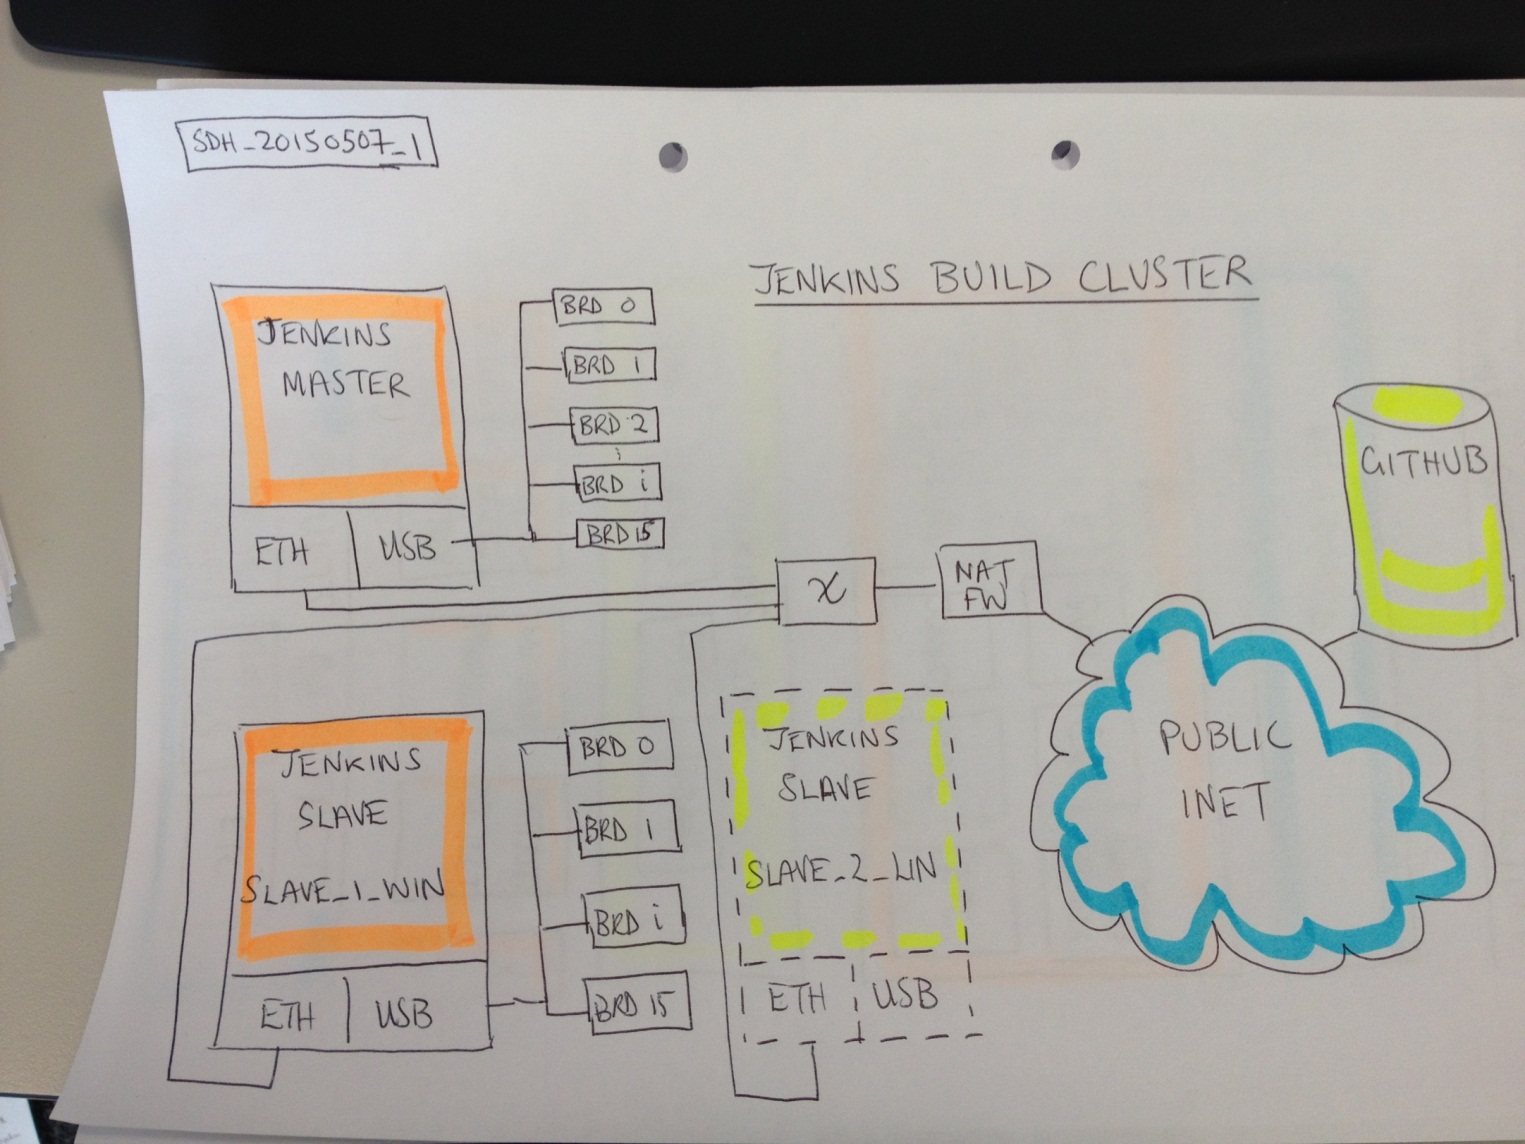 SDH_20150507_1
JENKINS BUILD CLUSTER
JENKINS
MASTER
ETH
USB
BRD 0
BRD 1
BRD 2
BRD i
BRD 15
X
NAT
FW
GITHUB
PUBLIC
INET
JENKINS
SLAVE
SLAVE_1_WIN
ETH
USB
BRD 0
BRD 1
BRD i
BRD 15
JENKINS
SLAVE
SLAVE_2_LIN
ETH
USB